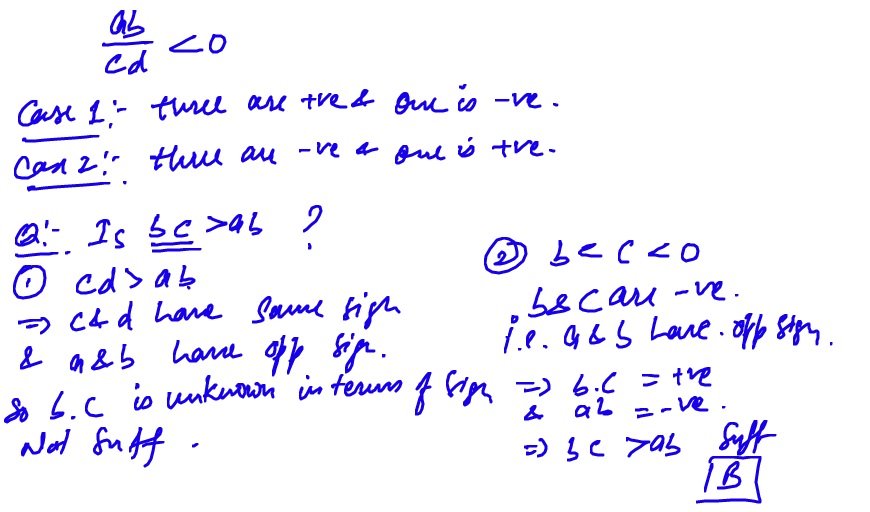 ab/cd < 0
Case 1:- three are +ve & one is -ve.
Case 2:- three are -ve & one is +ve.
Q:- Is bc > ab ?
① cd > ab
=> c & d have same sign
& a & b have opp sign.
So b.c is unknown in terms of sign
Not Suff.
② b < c < 0
b & c are -ve.
i.e. a & b have opp sign.
=> b.c = +ve
& ab = -ve.
=> bc > ab Suff
B